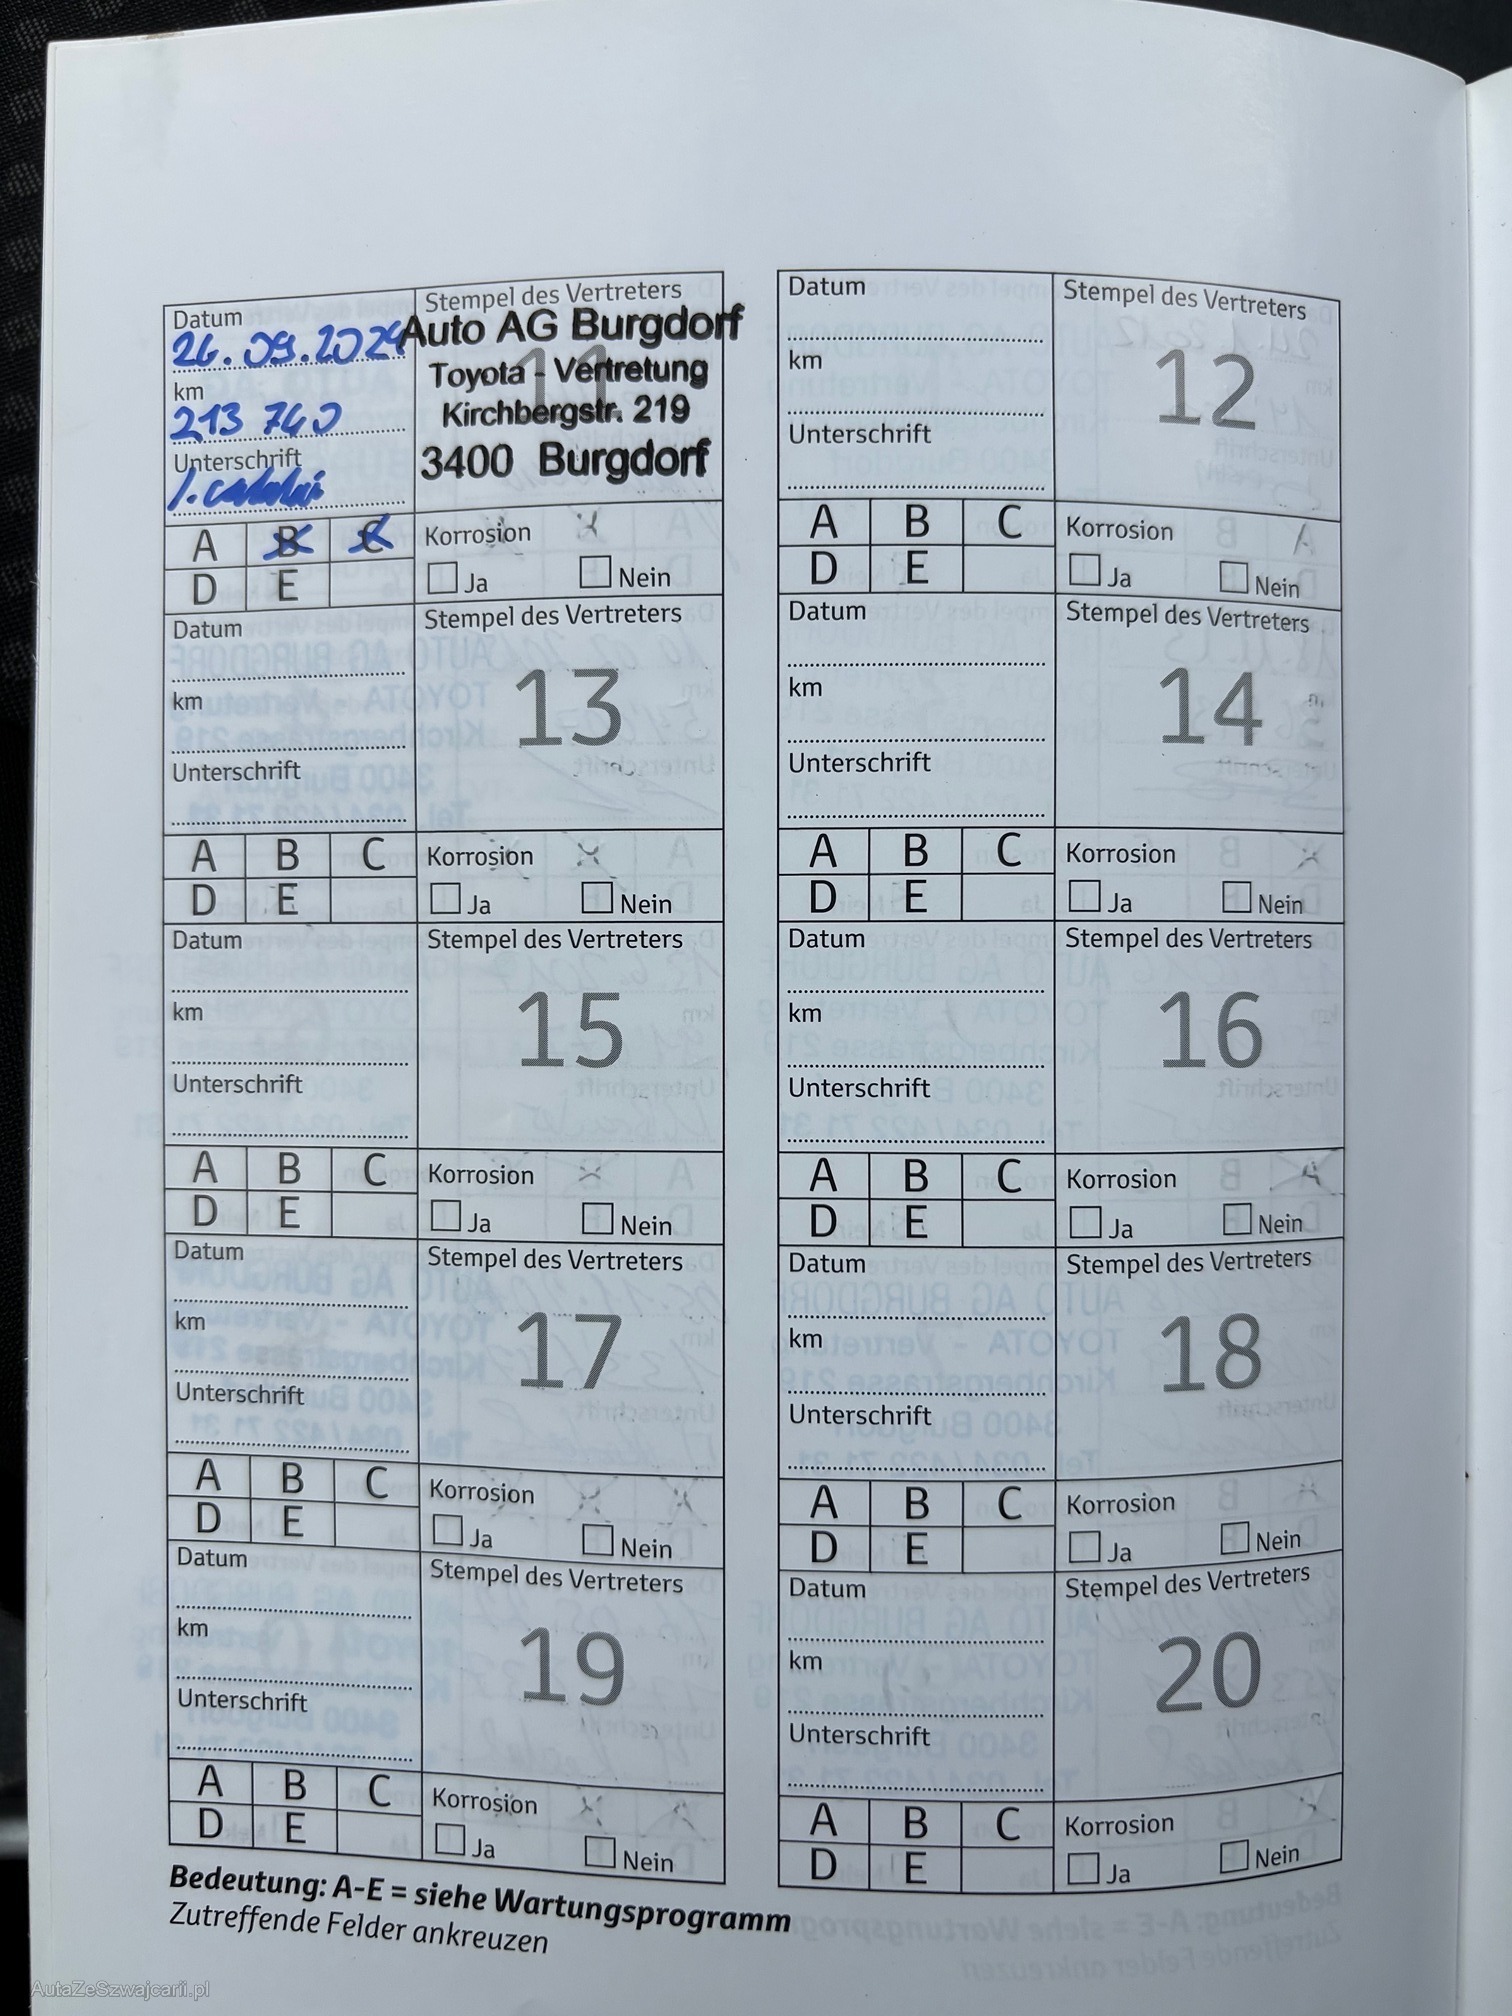 Datum
26.09.2024
km
213 740
Unterschrift
Stempel des Vertreters
11
Auto AG Burgdorf
Toyota - Vertretung
Kirchbergstr. 219
3400 Burgdorf
A B C
D E
Korrosion
Ja Nein
Datum
km
Unterschrift
Stempel des Vertreters
12
A B C
D E
Korrosion
Ja Nein
Datum
km
Unterschrift
Stempel des Vertreters
13
A B C
D E
Korrosion
Ja Nein
Datum
km
Unterschrift
Stempel des Vertreters
14
A B C
D E
Korrosion
Ja Nein
Datum
km
Unterschrift
Stempel des Vertreters
15
A B C
D E
Korrosion
Ja Nein
Datum
km
Unterschrift
Stempel des Vertreters
16
A B C
D E
Korrosion
Ja Nein
Datum
km
Unterschrift
Stempel des Vertreters
17
A B C
D E
Korrosion
Ja Nein
Datum
km
Unterschrift
Stempel des Vertreters
18
A B C
D E
Korrosion
Ja Nein
Datum
km
Unterschrift
Stempel des Vertreters
19
A B C
D E
Korrosion
Ja Nein
Datum
km
Unterschrift
Stempel des Vertreters
20
A B C
D E
Korrosion
Ja Nein
Bedeutung: A-E = siehe Wartungsprogramm
Zutreffende Felder ankreuzen
AutaZeSzwajcarii.pl